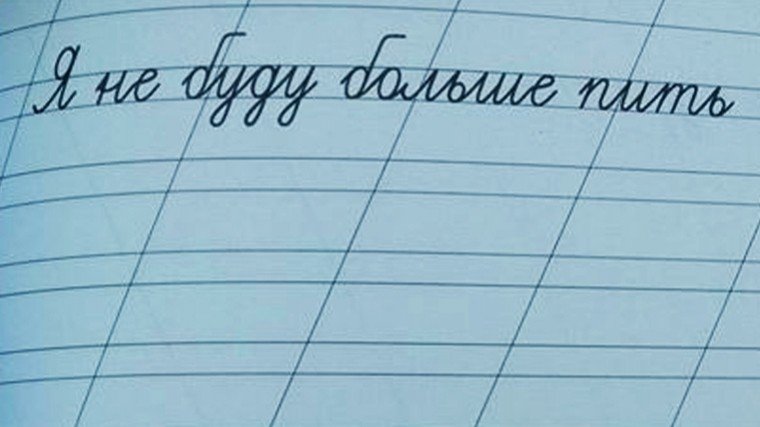 Я не буду больше пить